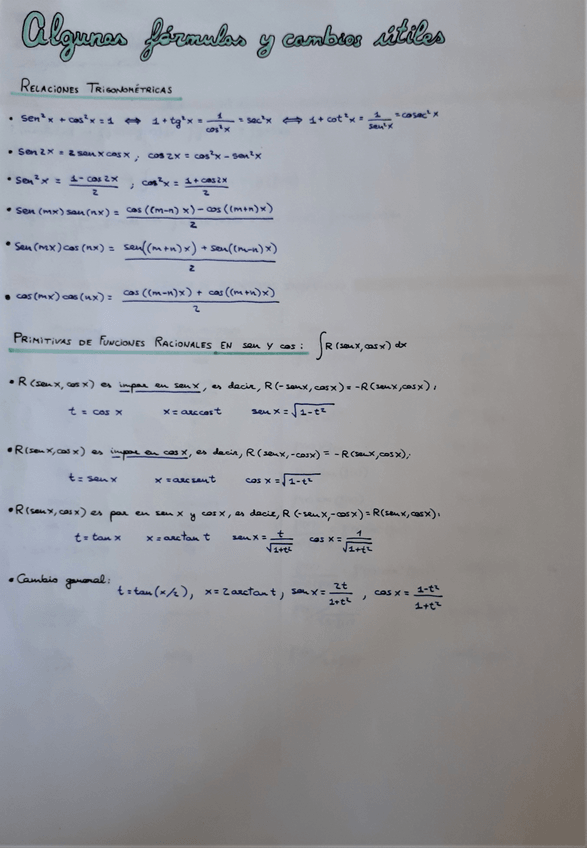 Algunas fórmulas y cambios útiles
RELACIONES TRIGONOMÉTRICAS
• sen²x + cos²x = 1 ⟺ 1 + tg²x = 1/cos²x = sec²x ⟺ 1 + cot²x = 1/sen²x = cosec²x
• sen2x = 2senxcosx, cos2x = cos²x - sen²x
• sen²x = (1-cos2x)/2 ; cos²x = (1+cos2x)/2
• sen(mx)sen(nx) = (cos((m-n)x) - cos((m+n)x))/2
• sen(mx)cos(nx) = (sen((m+n)x) + sen((m-n)x))/2
• cos(mx)cos(nx) = (cos((m-n)x) + cos((m+n)x))/2
PRIMITIVAS DE FUNCIONES RACIONALES EN sen y cos: ∫R(senx,cosx)dx
• R(senx,cosx) es impar en senx, es decir, R(-senx,cosx) = -R(senx,cosx),
t = cos x x = arccos t sen x = √(1-t²)
• R(senx,cosx) es impar en cosx, es decir, R(senx,-cosx) = -R(senx,cosx),
t = sen x x = arcsen t cos x = √(1-t²)
• R(senx,cosx) es par en senx y cosx, es decir, R(-senx,-cosx) = R(senx,cosx),
t = tan x x = arctan t sen x = t/√(1+t²) cos x = 1/√(1+t²)
• Cambio general:
t = tan(x/2), x = 2arctan t, sen x = 2t/(1+t²), cos x = (1-t²)/(1+t²)